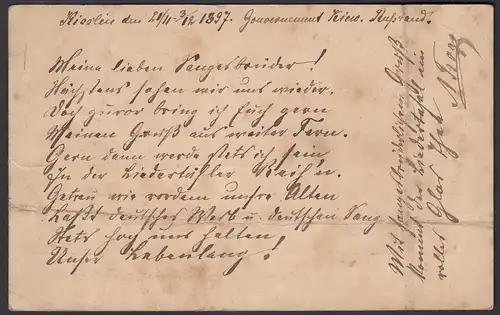 den 21/11 3/12 1897. Gouvernement Kiew. Russland.
Meine lieben Sangesbrüder!
Nächstens sehen wir uns wieder.
Doch zuvor bring ich Euch gern
Meinen Gruß aus weiter Fern.
Gern dann werde stets ich sein
In der Liedertäfler Reih'n.
Getreu wie vordem unsre Alten
Laßt deutsches Werb u. deutschen Sang
Stets hoch uns halten,
Unser Lebenlang!
Mit sangesbrüderlichem Gruß
kommt der Liedertafel ein
volles Glas